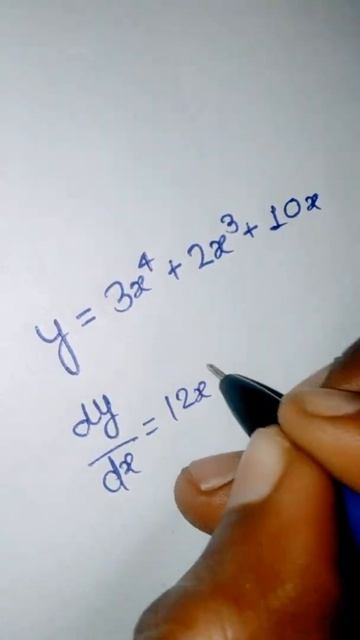 y = 3x⁴ + 2x³ + 10x
dy/dx = 12x